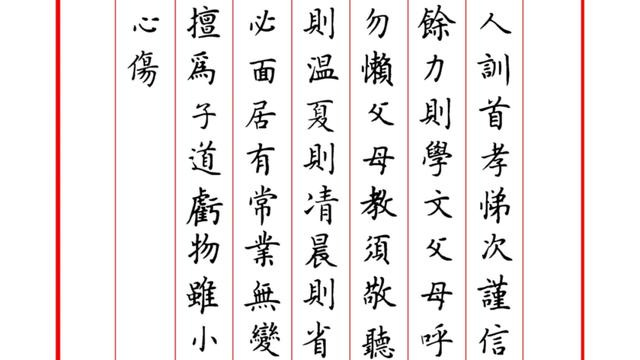 人訓首孝悌次謹信
餘力則學文父母呼
勿懶父母教須敬聽
則温夏則凊晨則省
必面居有常業無變
擅為子道虧物雖小
心傷